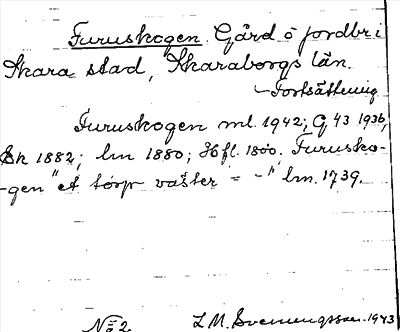 Furuskogen. Gård o jordbr. i
Skara stad, Skaraborgs län.
- Fortsättning
Furuskogen ml. 1942; G 43 1936,
Ek 1882; lm 1880; Hfl. 1800. Furusko-
-gen "et torp väster = -" lm. 1739.
No 2 L.M. Svenungsson. 1943